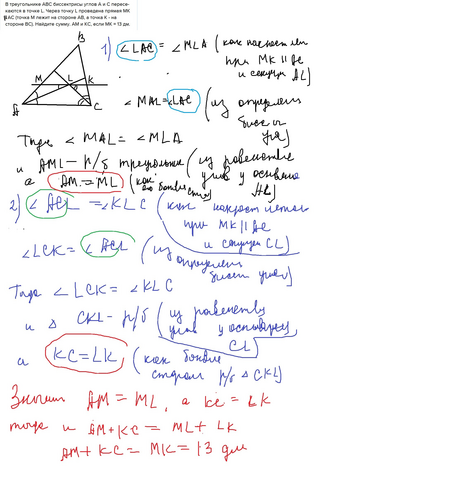 В треугольнике ABC биссектрисы углов А и С пересе-
каются в точке L. Через точку L проведена прямая MK
∥AC (точка M лежит на стороне AB, а точка K - на
стороне BC). Найдите сумму. AM и KC, если MK = 13 дм.
B
M
L
K
A
C
1) ∠LAC = ∠MLA (как накрест леж
при MK ∥ AC
и секущ AL)
∠MAL = ∠LAC (из определен
бисс-ы
угла)
Тогда ∠MAL = ∠MLA
и AML - р/б треугольник (из равенства
углов у основан
AL)
а AM = ML (как
его боков ст)
2) ∠ACL = ∠KLC (как накрест лежащ
при MK ∥ AC
и секущ CL)
∠LCK = ∠ACL (из
определен
бисс угла)
Тогда ∠LCK = ∠KLC
и △ CKL - р/б (из равенства
углов у основания
CL)
а KC = LK (как боков
сторон р/б △ CKL)
Значит AM = ML, а KC = LK
тогда и AM + KC = ML + LK
AM + KC = MK = 13 дм